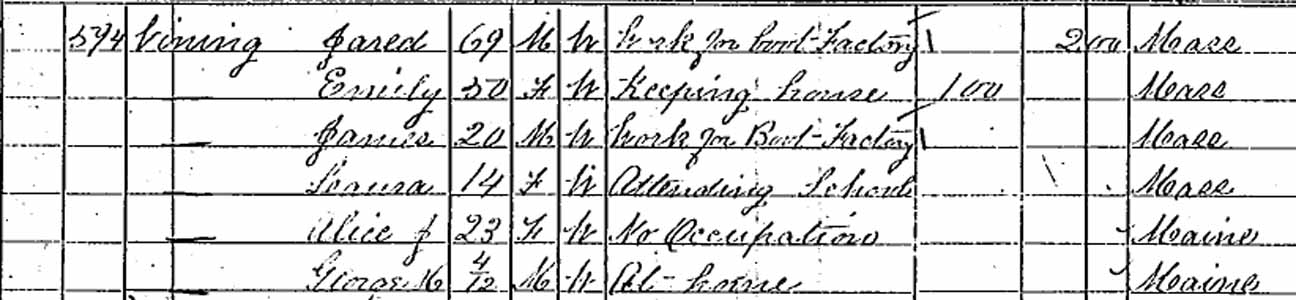 594 Vining Jared 69 M W Work for Boot-Factory 200 Mass
— Emily 50 F W Keeping house 100 Mass
— James 20 M W Work for Boot-Factory Mass
— Laura 14 F W Attending School Mass
— Alice J 23 F W No Occupation Maine
— George M 4/12 M W At home Maine